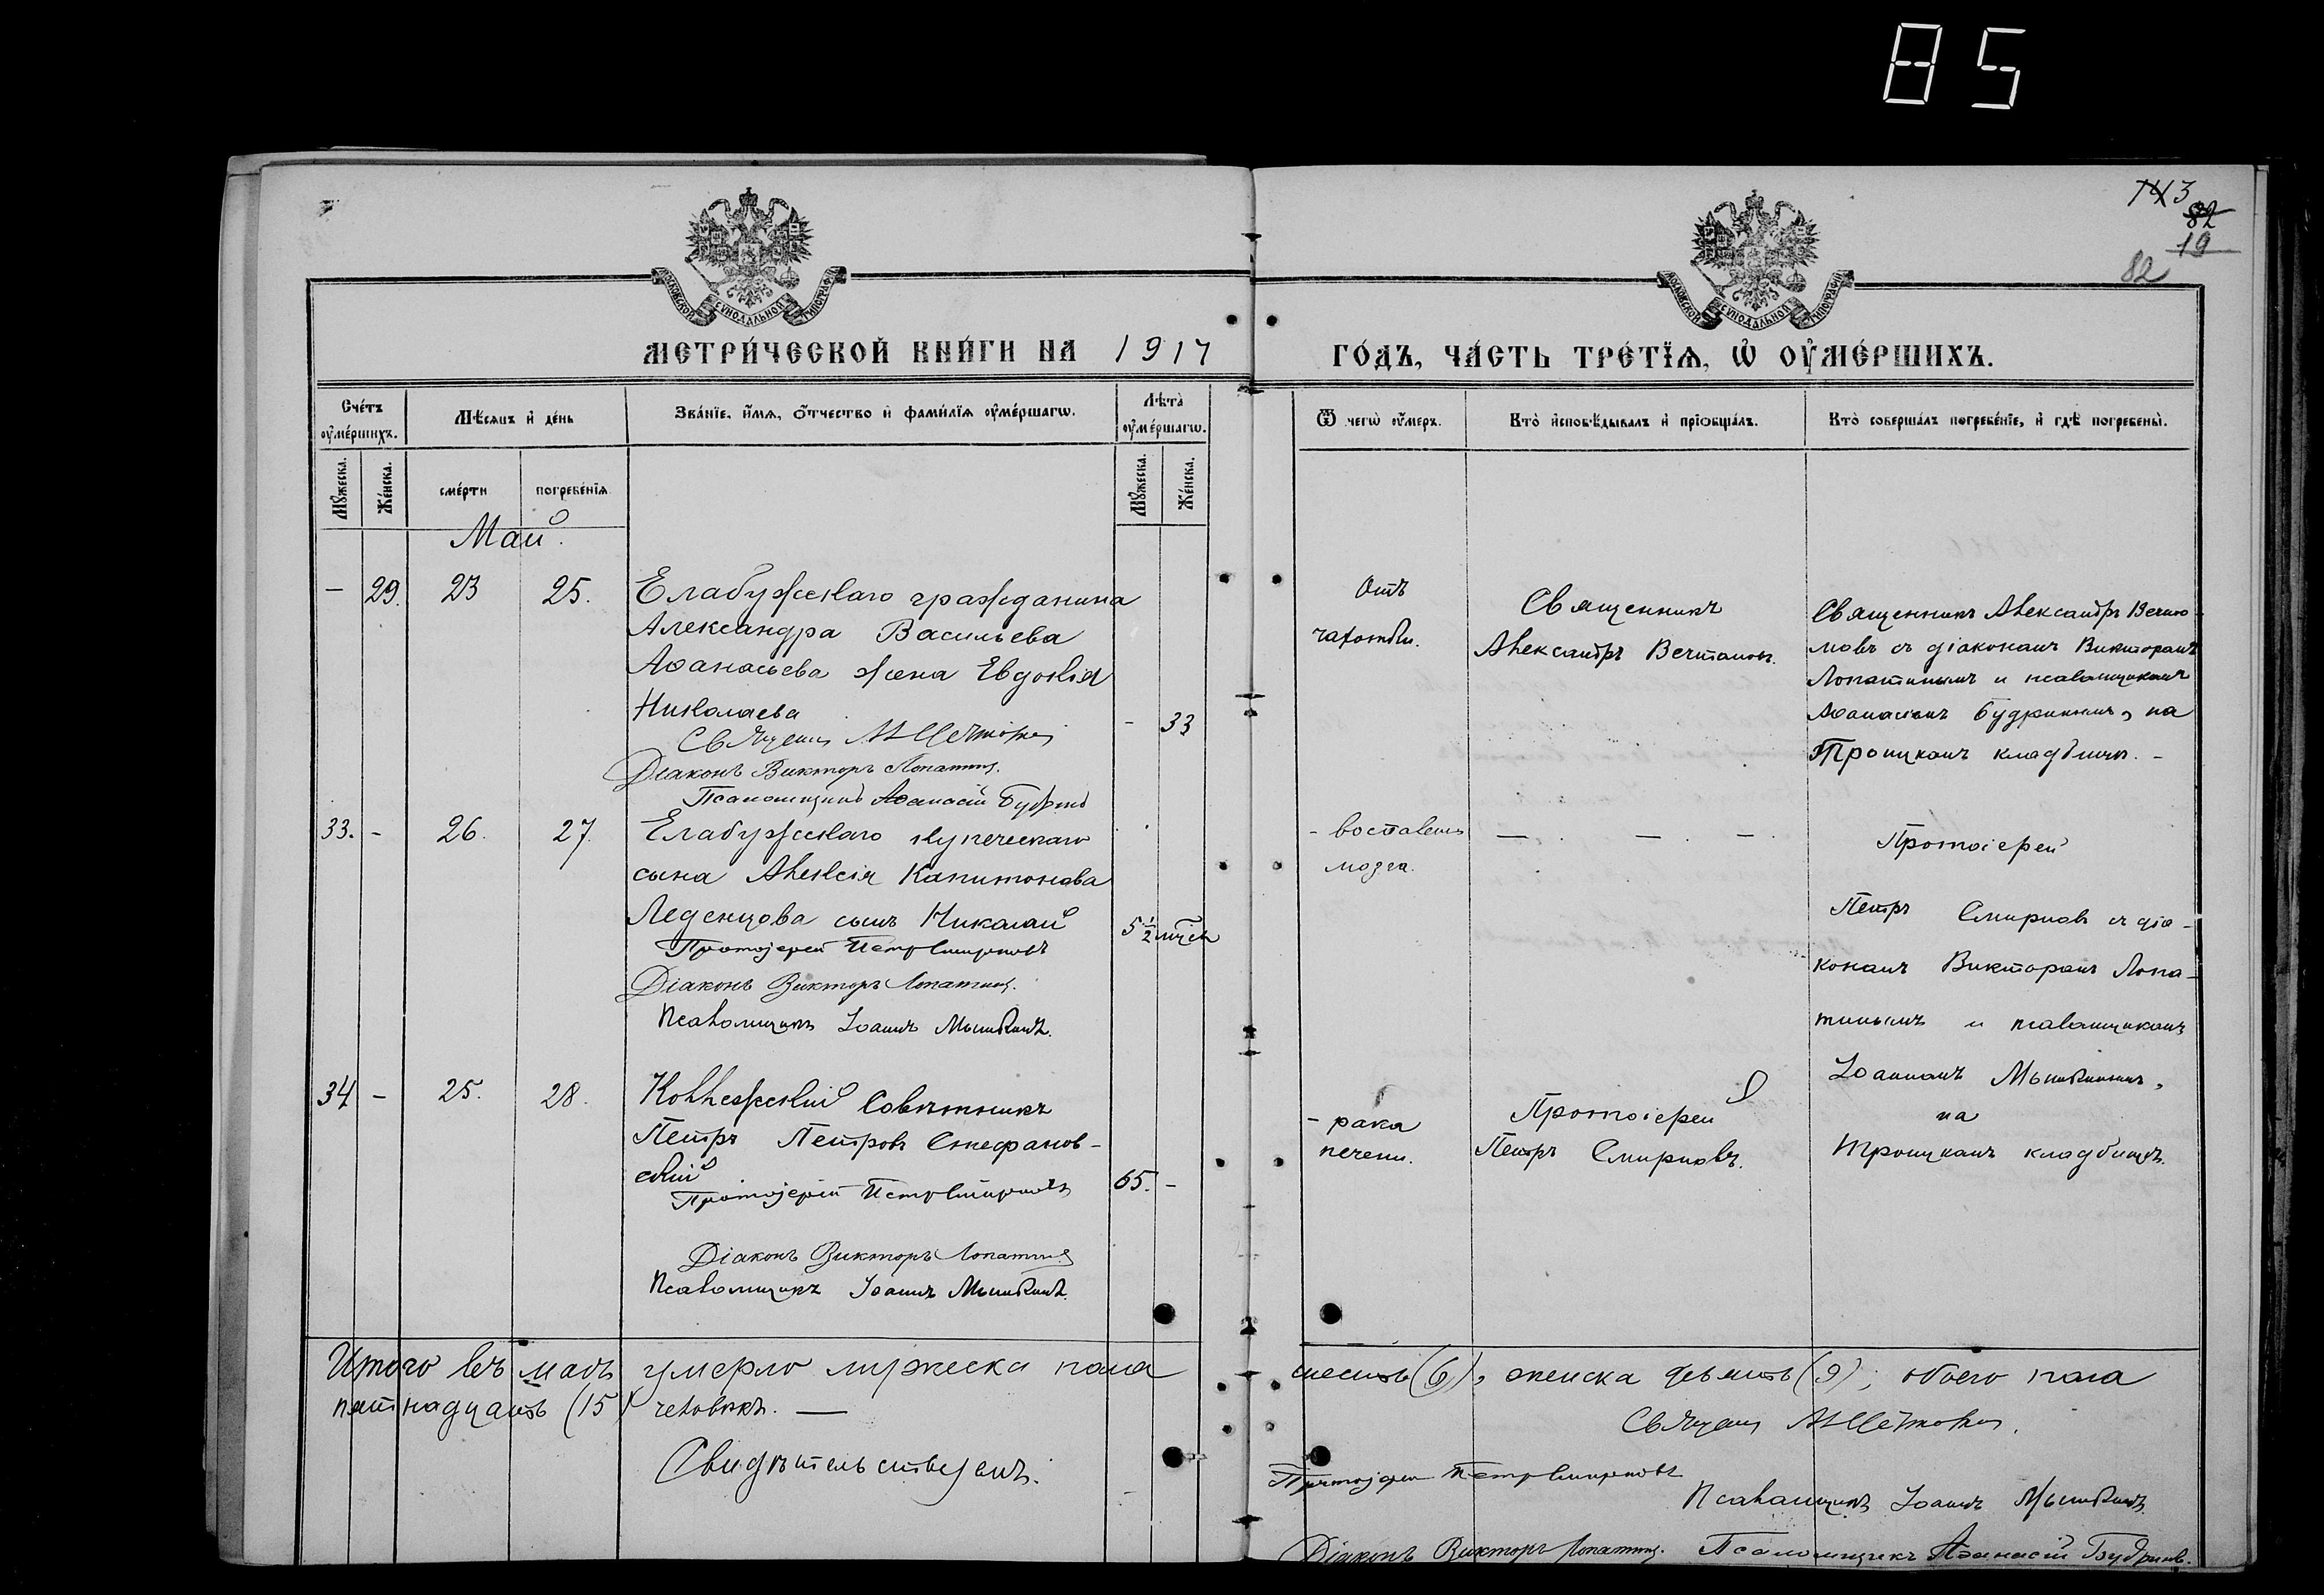 85
143
82
19
82
МОСКОВСКОЙ СУНОДАЛЬНОЙ ТИПОГРАФІИ
МОСКОВСКОЙ СУНОДАЛЬНОЙ ТИПОГРАФІИ
МЕТРИ́ЧЕСКОЙ КНИ́ГИ НА 1917
ГО́ДЪ, ЧА́СТЬ ТРЕ́ТЇѦ, Ѡ҆ ОУ҆МЕ́РШИХЪ.
Сче́тъ оу҆ме́ршихъ.
Мѣ́сѧцъ и҆ де́нь
Зва́нїе, и҆́мѧ, ѻ҆́тчество и҆ фами́лїѧ оу҆ме́ршагѡ.
Лѣ́та оу҆ме́ршагѡ.
Ѿ чегѡ̀ оу҆́меръ.
Кто̀ и҆сповѣ́дывалъ и҆ прїѻбща́лъ.
Кто̀ соверша́лъ погребе́нїе, и҆ гдѣ̀ погребены̀.
Мꙋ́жеска.
Же́нска.
сме́рти
погребе́нїѧ
Мꙋ́жеска.
Же́нска.
Май.
- 29. 23 25.
Елабужскаго гражданина
Александра Васильева
Аѳанасьева жена Евдокія
Николаева
- 33
Діаконъ Викторъ Лопатинъ.
Псаломщикъ Аѳанасій Будринъ
Отъ
чахотки.
Священникъ
Александръ Вечтомовъ.
Священникъ Александръ Вечто-
мовъ съ діакономъ Викторомъ
Лопатинымъ и псаломщикомъ
Аѳанасіемъ Будринымъ, на
Троицкомъ кладбищѣ. -
33. - 26. 27.
Елабужскаго купеческаго
сына Алексія Капитонова
Леденцова сынъ Николай
5 1/2 мѣс.
Протоіерей Петръ Смирновъ
Діаконъ Викторъ Лопатинъ.
Псаломщикъ Іоаннъ Мышкинъ.
- воспаленія
мозга.
- - -
Протоіерей
Петръ Смирновъ съ діа-
кономъ Викторомъ Лопа-
тинымъ и псаломщикомъ
Іоанномъ Мышкинымъ,
на
Троицкомъ кладбищѣ.
34 - 25. 28.
Коллежскій Совѣтникъ
Петръ Петровъ Стефанов-
скій
65. -
Протоіерей Петръ Смирновъ
Діаконъ Викторъ Лопатинъ
Псаломщикъ Іоаннъ Мышкинъ.
- рака
печени.
Протоіерей
Петръ Смирновъ.
Итого въ маѣ умерло мужеска пола шесть (6), женска девять (9); обоего пола
пятнадцать (15) человѣкъ. —
Свидѣтельствуемъ:
Протоіерей Петръ Смирновъ
Псаломщикъ Іоаннъ Мышкинъ
Діаконъ Викторъ Лопатинъ. Псаломщикъ Аѳанасій Будринъ.